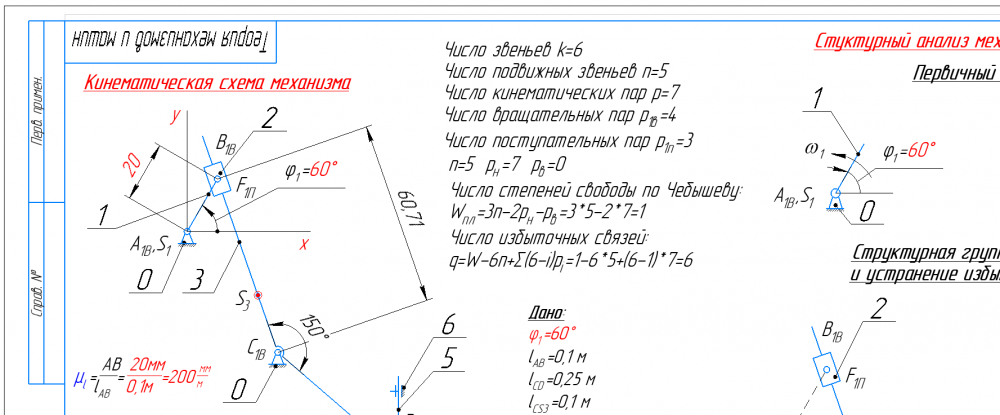 Теория механизмов и машин
Перв. примен.
Справ. №
Кинематическая схема механизма
y
2
B1В
20
F1П
φ1=60°
1
60,71
A1В,S1
x
0
3
S3
150°
C1В
0
6
5
μl=AB/lAB=20мм/0,1м=200 мм/м
Число звеньев k=6
Число подвижных звеньев n=5
Число кинематических пар p=7
Число вращательных пар p1В=4
Число поступательных пар p1П=3
n=5 pН=7 pВ=0
Число степеней свободы по Чебышеву:
Wпл=3n-2pН-pВ=3*5-2*7=1
Число избыточных связей:
q=W-6n+Σ(6-i)pi=1-6*5+(6-1)*7=6
Дано:
φ1=60°
lAB=0,1 м
lCD=0,25 м
lCS3=0,1 м
Стуктурный анализ мех
Первичный
1
ω1
φ1=60°
A1В,S1
0
Структурная груп
и устранение избы
2
B1В
F1П